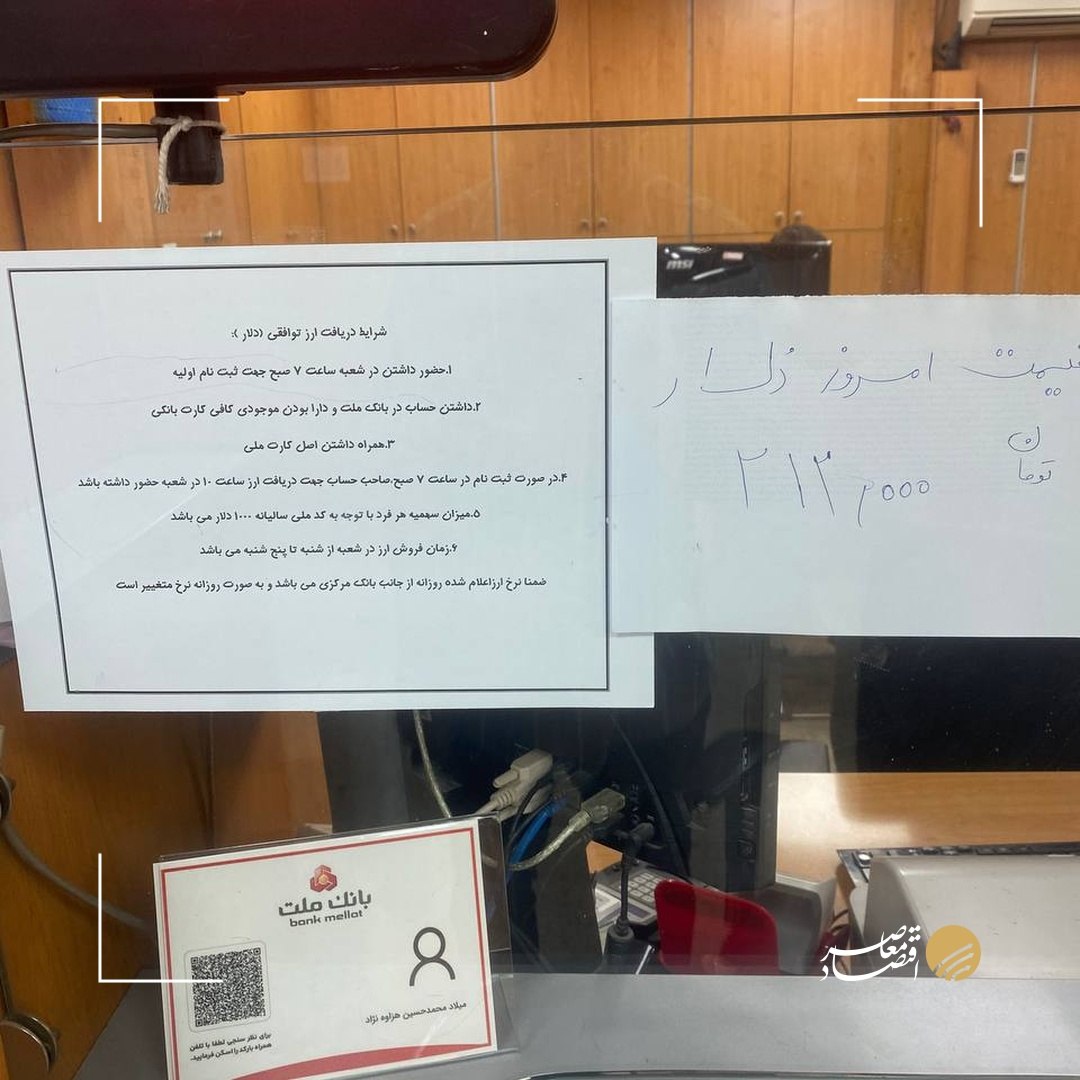 شرایط دریافت ارز توافقی (دلار ):
۱.حضور داشتن در شعبه ساعت ۷ صبح جهت ثبت نام اولیه
۲.داشتن حساب در بانک ملت و دارا بودن موجودی کافی کارت بانکی
۳.همراه داشتن اصل کارت ملی
۴.در صورت ثبت نام در ساعت ۷ صبح،صاحب حساب جهت دریافت ارز ساعت ۱۰ در شعبه حضور داشته باشد
۵.میزان سهمیه هر فرد با توجه به کد ملی سالیانه ۱۰۰۰ دلار می باشد
۶.زمان فروش ارز در شعبه از شنبه تا پنج شنبه می باشد
ضمنا نرخ ارزاعلام شده روزانه از جانب بانک مرکزی می باشد و به صورت روزانه نرخ متغییر است
قیمت امروز دلار
تومان
msi
بانک ملت
bank mellat
میلاد محمدحسین هزاوه نژاد
برای نظر سنجی لطفا با تلفن
همراه بارکد را اسکن فرمایید.
اقتصاد معاصر